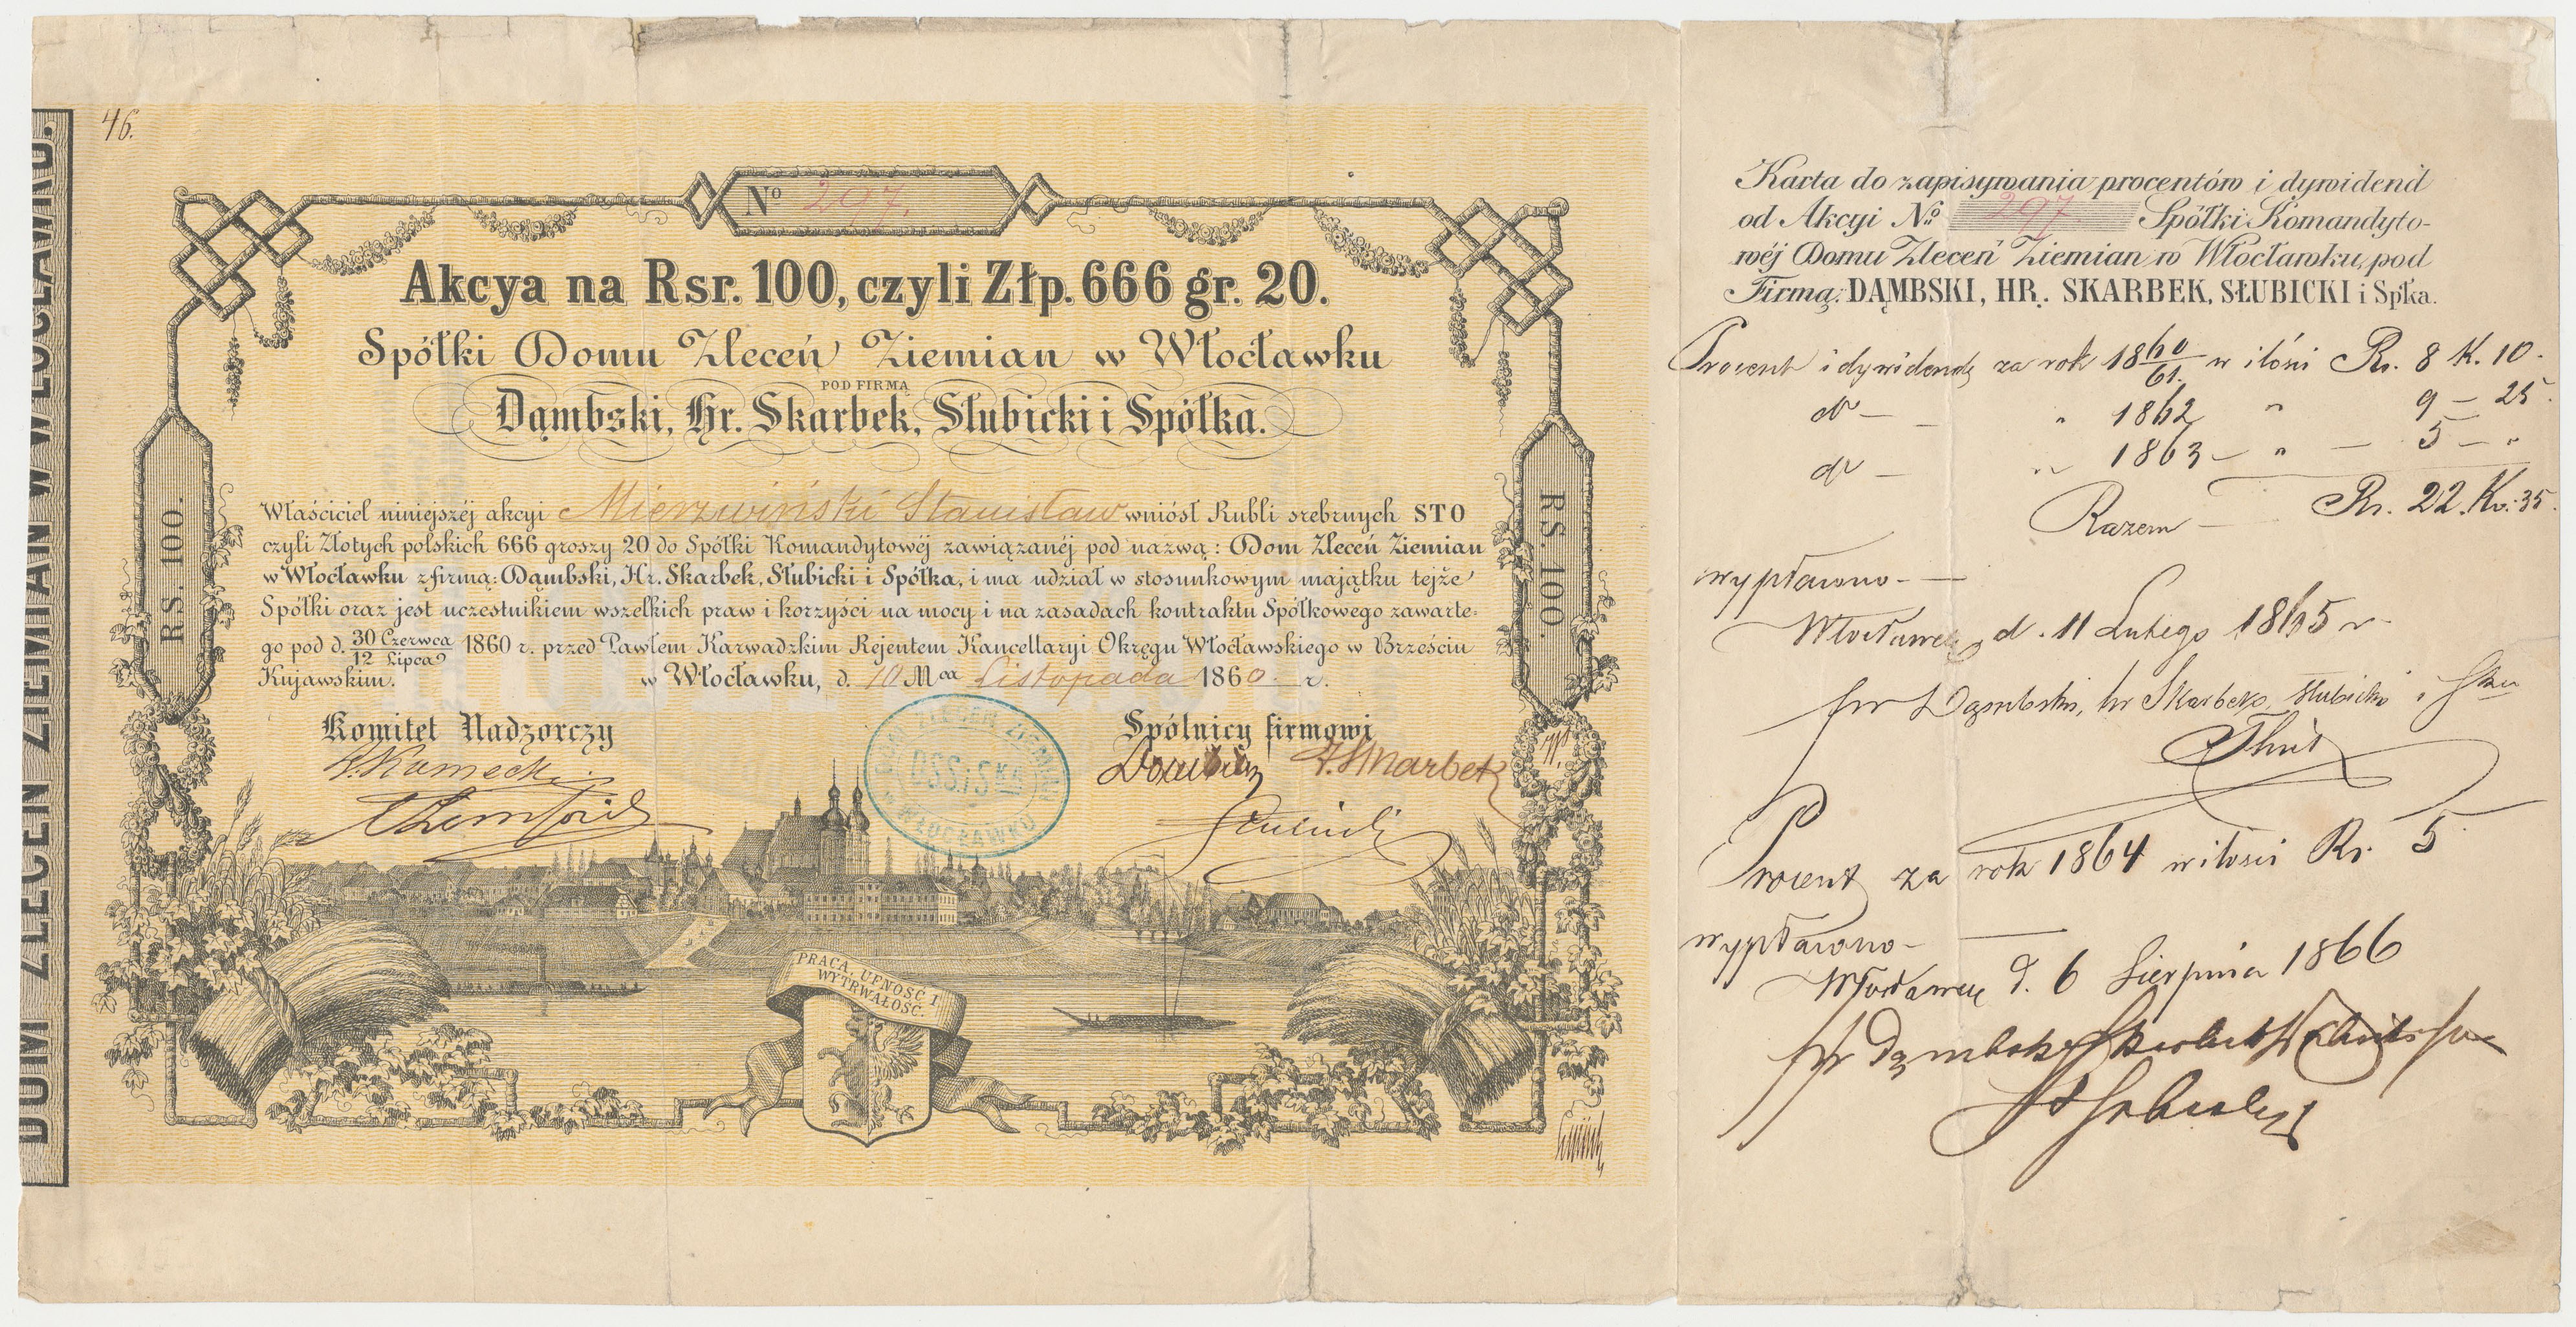 DOM ZLECEŃ ZIEMIAN W WŁOCŁAWKU.
46.
No 297.
Akcya na Rsr. 100, czyli Złp. 666 gr. 20.
Spółki Domu Zleceń Ziemian w Włocławku
POD FIRMĄ
Dąmbski, Hr. Skarbek, Słubicki i Spółka.
RS. 100.
RS. 100.
Właściciel niniejszéj akcyi Mierzwiński Stanisław wniósł Rubli srebrnych STO
czyli Złotych polskich 666 groszy 20 do Spółki Komandytowéj zawiązanéj pod nazwą: Dom Zleceń Ziemian
w Włocławku z firmą: Dąmbski, Hr. Skarbek, Słubicki i Spółka, i ma udział w stosunkowym majątku tejże
Spółki oraz jest uczestnikiem wszelkich praw i korzyści na mocy i na zasadach kontraktu Spółkowego zawarte-
go pod d. 30 Czerwca/12 Lipca 1860 r. przed Pawłem Karwadzkim Rejentem Kancellaryi Okręgu Włocławskiego w Brześciu
Kujawskim. w Włocławku, d. 10 Mca Listopada 1860. r.
Komitet Nadzorczy
Spólnicy firmowi
Kamecki
Skarbek
DOM ZLECEŃ ZIEMIAN
DSS. i SKA
w WŁOCŁAWKU
PRACA, UFNOŚĆ I
WYTRWAŁOŚĆ.
Karta do zapisywania procentów i dywidend
od Akcyi No 297 Spółki Komandyto-
wéj Domu Zleceń Ziemian w Włocławku, pod
Firmą: DĄMBSKI, HR. SKARBEK, SŁUBICKI i Spłka.
Procent i dywidendę za rok 1860/61. w ilości Rs. 8 K. 10.
do — „ 1862 „ 9 — 25.
do — „ 1863 — „ — 5 — „
Razem — Rs. 22. Kp. 35.
wypłacono —
Włocławek d. 11 Lutego 1865 r.
pr Dąmbski, hr Skarbek, Słubicki i Ska
Procent za rok 1864 w ilości Rs. 5
wypłacono —
Włocławek d. 6 Sierpnia 1866
pr Dąmbski Skarbek Słubicki